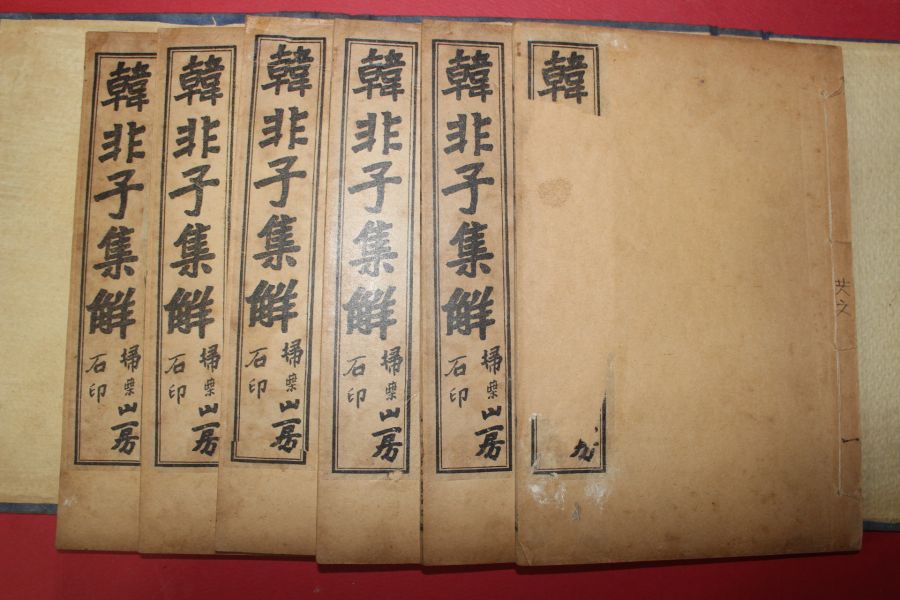 共六
一
韓
韓非子集解
掃葉山房
石印
韓非子集解
掃葉山房
石印
韓非子集解
掃葉山房
石印
韓非子集解
掃葉山房
石印
韓非子集解
掃葉山房
石印